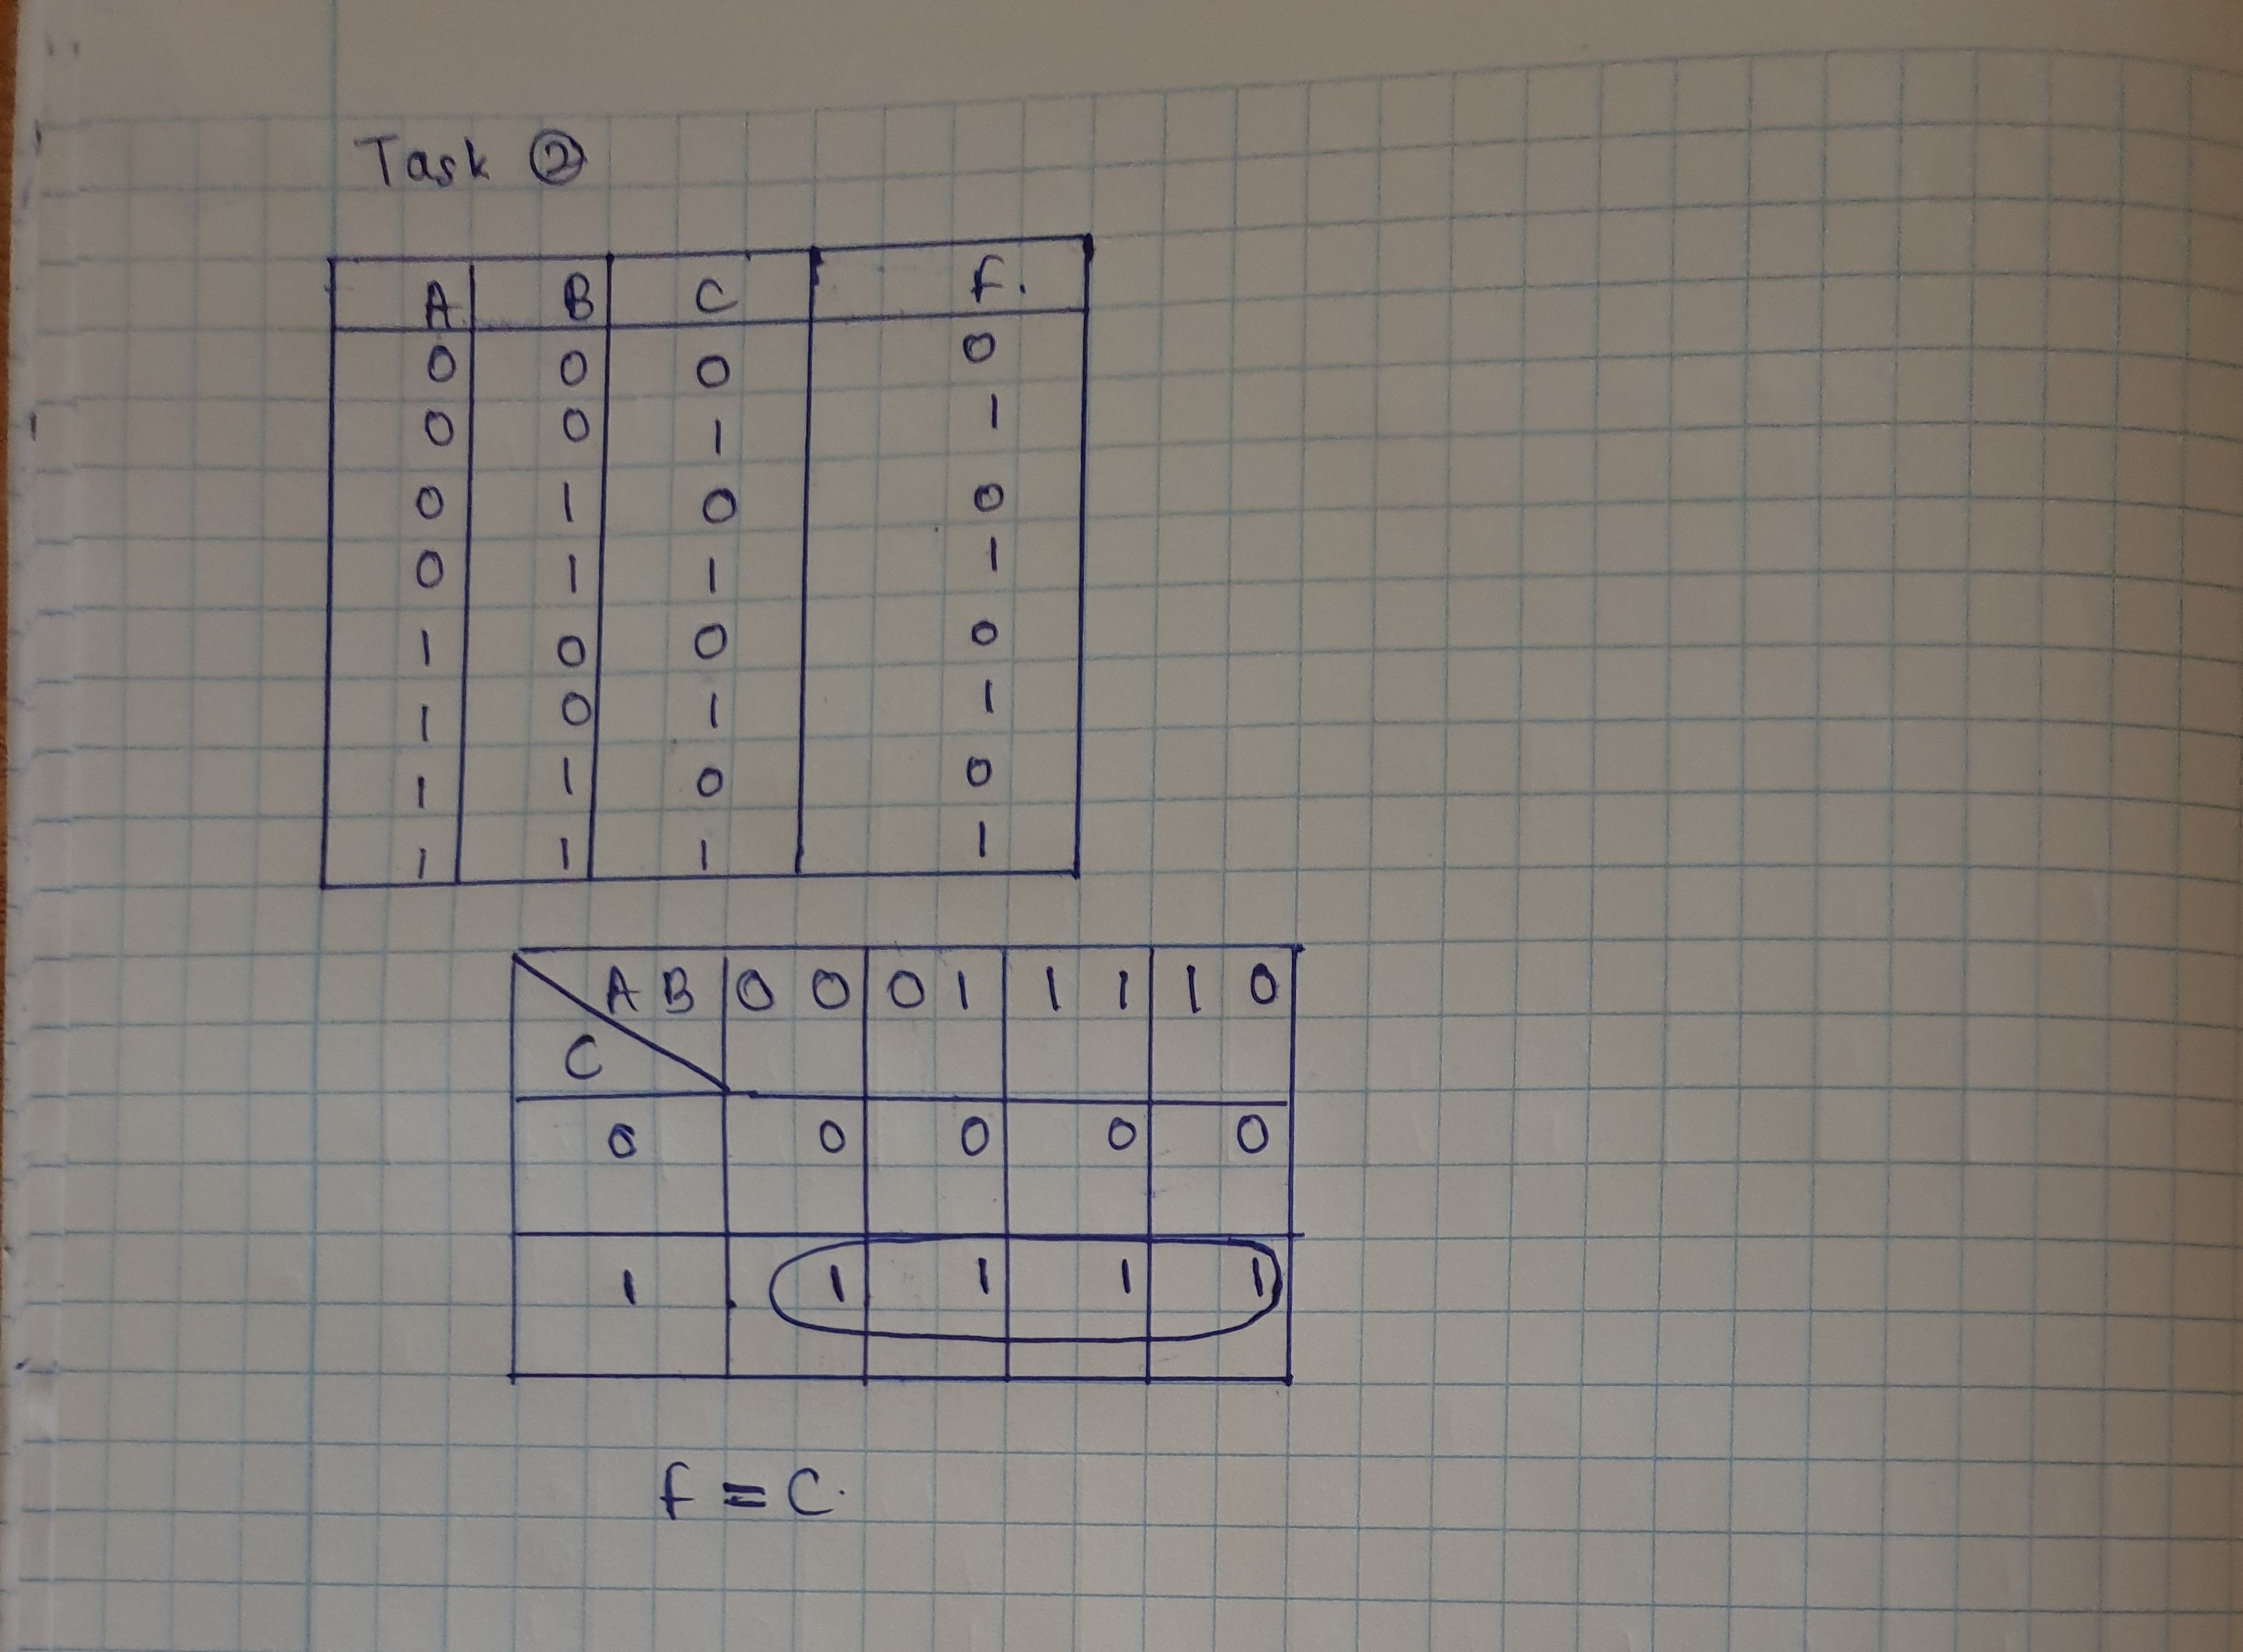 Task ②
A B C f.
0 0 0 0
0 0 1 1
0 1 0 0
0 1 1 1
1 0 0 0
1 0 1 1
1 1 0 0
1 1 1 1
A B 0 0 0 1 1 1 1 0
C
0 0 0 0 0
1 1 1 1 1
f = C.